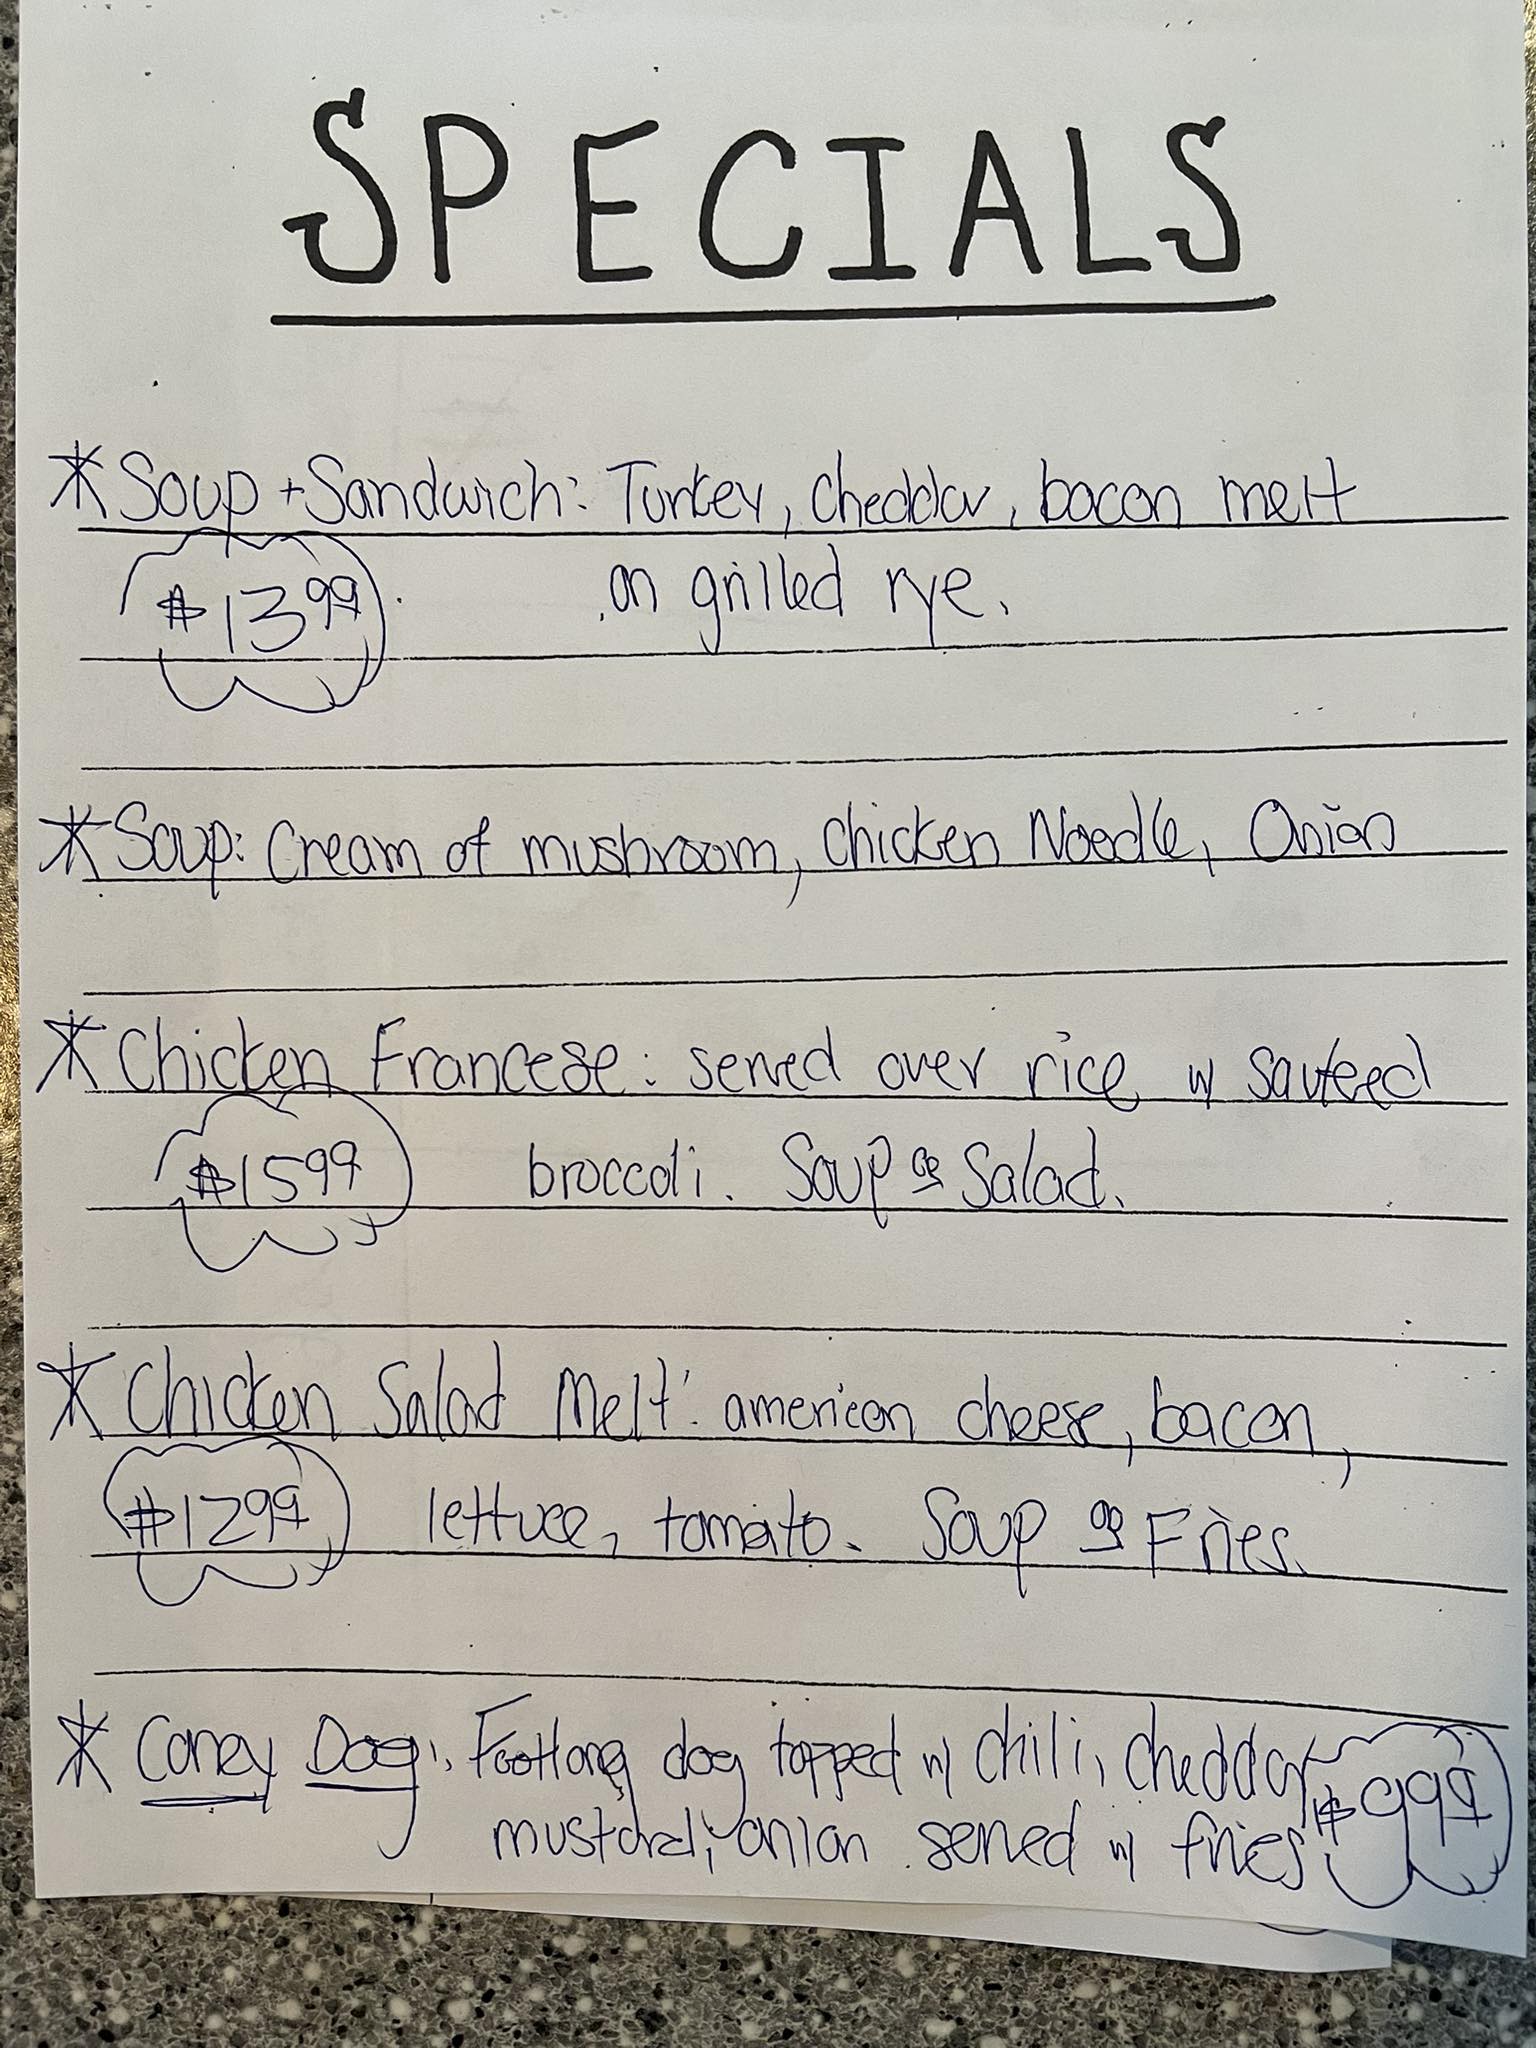 SPECIALS
* Soup + Sandwich: Turkey, Cheddar, bacon melt
$13.99 on grilled rye.
* Soup: Cream of mushroom, Chicken Noodle, Onion
* Chicken Francese: served over rice w/ sauteed
$15.99 broccoli. Soup or Salad.
* Chicken Salad Melt: american cheese, bacon,
$12.99 lettuce, tomato. Soup or Fries.
* Coney Dog: Footlong dog topped w/ chili, cheddar
mustard, onion served w/ fries $9.99